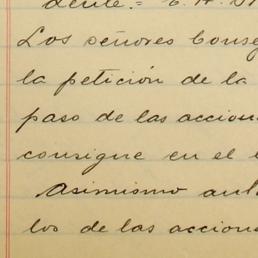 dente.=
Los señores Conse
la petición de la
paso de las accion
consigne en el
Asimismo
los de las accion